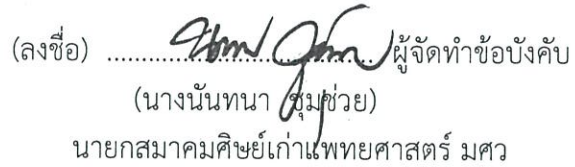 (ลงชื่อ) ........................................ ผู้จัดทำข้อบังคับ
(นางนันทนา ชุมช่วย)
นายกสมาคมศิษย์เก่าแพทยศาสตร์ มศว